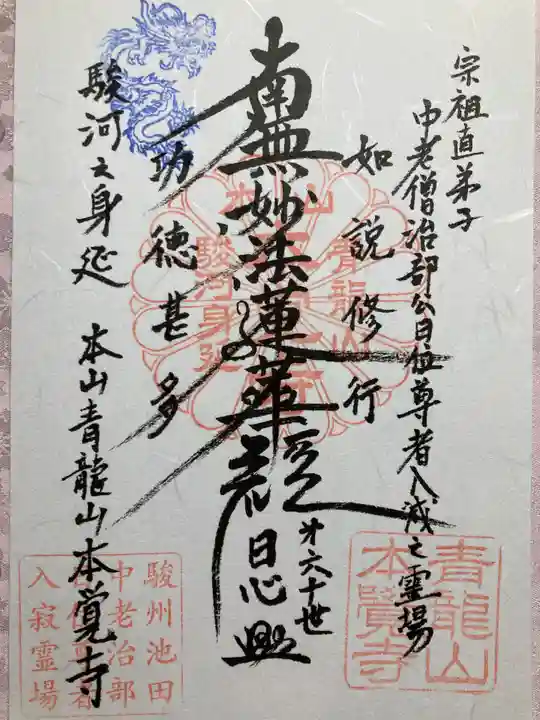 宗祖直弟子
中老僧治部公日位尊者入滅之霊場
如説修行
南無妙法蓮華経
第六十世
日心
功徳甚多
駿河之身延 本山青龍山本覚寺
本山
青龍山
駿河身延
青龍山
本覺寺
駿州池田
中老治部
入寂霊場